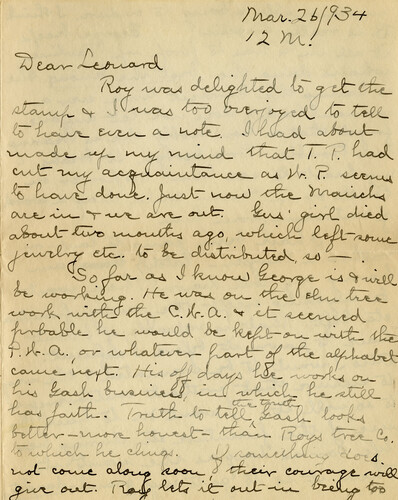 Mar. 26/934
12 M.
Dear Leonard
Roy was delighted to get the
stamp & I was too overjoyed to tell
to have even a note. I had about
made up my mind that T. P. had
cut my acquaintance as W. P. seems
to have done. Just now the Maischs
are in & we are out. Gus' girl died
about two months ago, which left some
jewelry etc. to be distributed, so —
So far as I know George is & will
be working. He was on the elm tree
work with the C.W.A. & it seemed
probable he would be kept on with the
P.W.A. or whatever part of the alphabet
came next. His off days he works on
his Gash business, in which he still
has faith. Truth to tell, Gash looks
better – more honest – than Roy's tree Co.
to which he clings. If something does
not come along soon their courage will
give out. Roy lets it out in being too